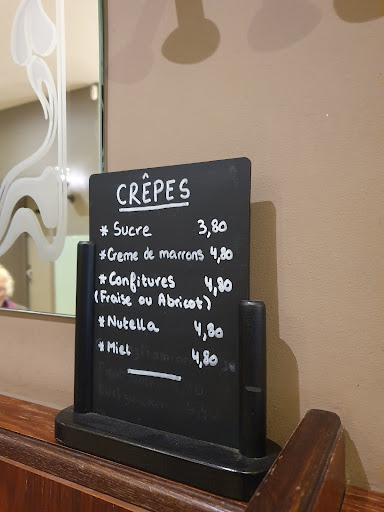 CRÊPES
* Sucre 3,80
* Creme de marrons 4,80
* Confitures 4,80
(Fraise ou Abricot)
* Nutella 4,80
* Miel 4,80